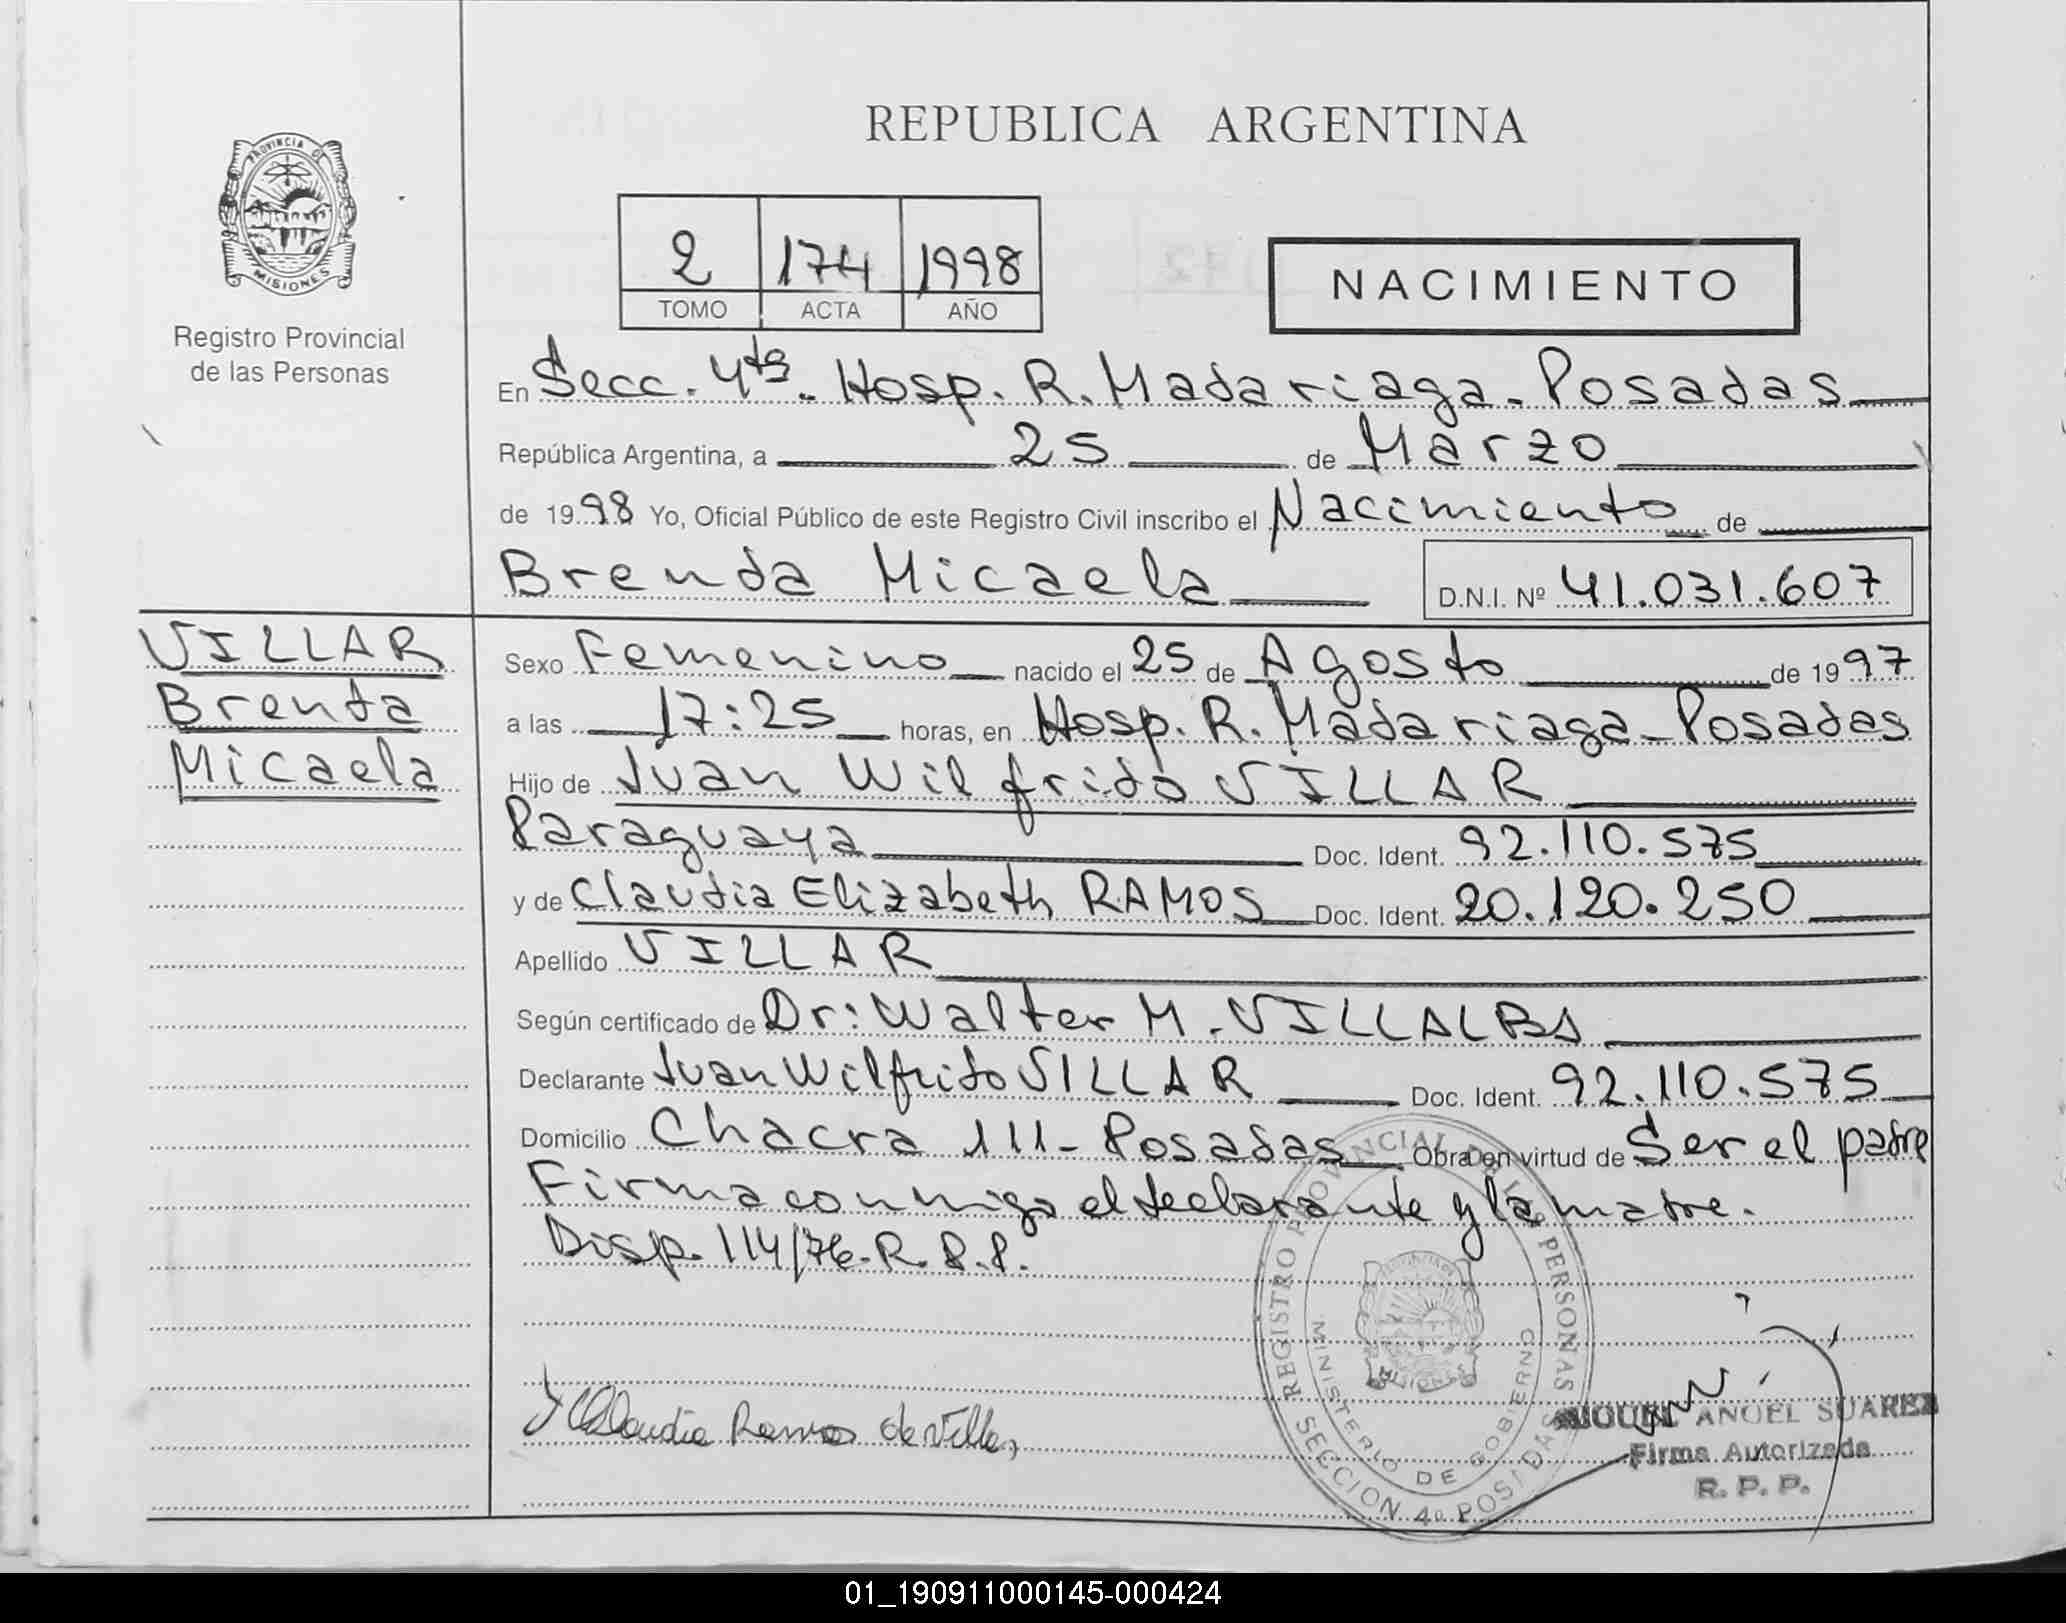 REPUBLICA ARGENTINA
PROVINCIA DE
MISIONES
Registro Provincial
de las Personas
2 174 1998
TOMO ACTA AÑO
NACIMIENTO
En Secc. 4ta. Hosp. R. Madariaga - Posadas
República Argentina, a 25 de Marzo
de 1998 Yo, Oficial Público de este Registro Civil inscribo el Nacimiento de
Brenda Micaela D.N.I. Nº 41.031.607
VILLAR
Brenda
Micaela
Sexo Femenino nacido el 25 de Agosto de 1997
a las 17:25 horas, en Hosp. R. Madariaga - Posadas
Hijo de Juan Wilfrido VILLAR
Paraguaya Doc. Ident. 92.110.575
y de Claudia Elizabeth RAMOS Doc. Ident. 20.120.250
Apellido VILLAR
Según certificado de Dr: Walter M. VILLALBA
Declarante Juan Wilfrido VILLAR Doc. Ident. 92.110.575
Domicilio Chacra 111 - Posadas Obra en virtud de Ser el padre
Firma conmigo el declarante y la madre.
Disp. 114/76. R.P.P.
REGISTRO PROVINCIAL DE LAS PERSONAS
MINISTERIO DE GOBIERNO
SECCION 4a POSADAS
Claudia Ramos de Villar
MIGUEL ANGEL SUAREZ
Firma Autorizada
R. P. P.
01_190911000145-000424